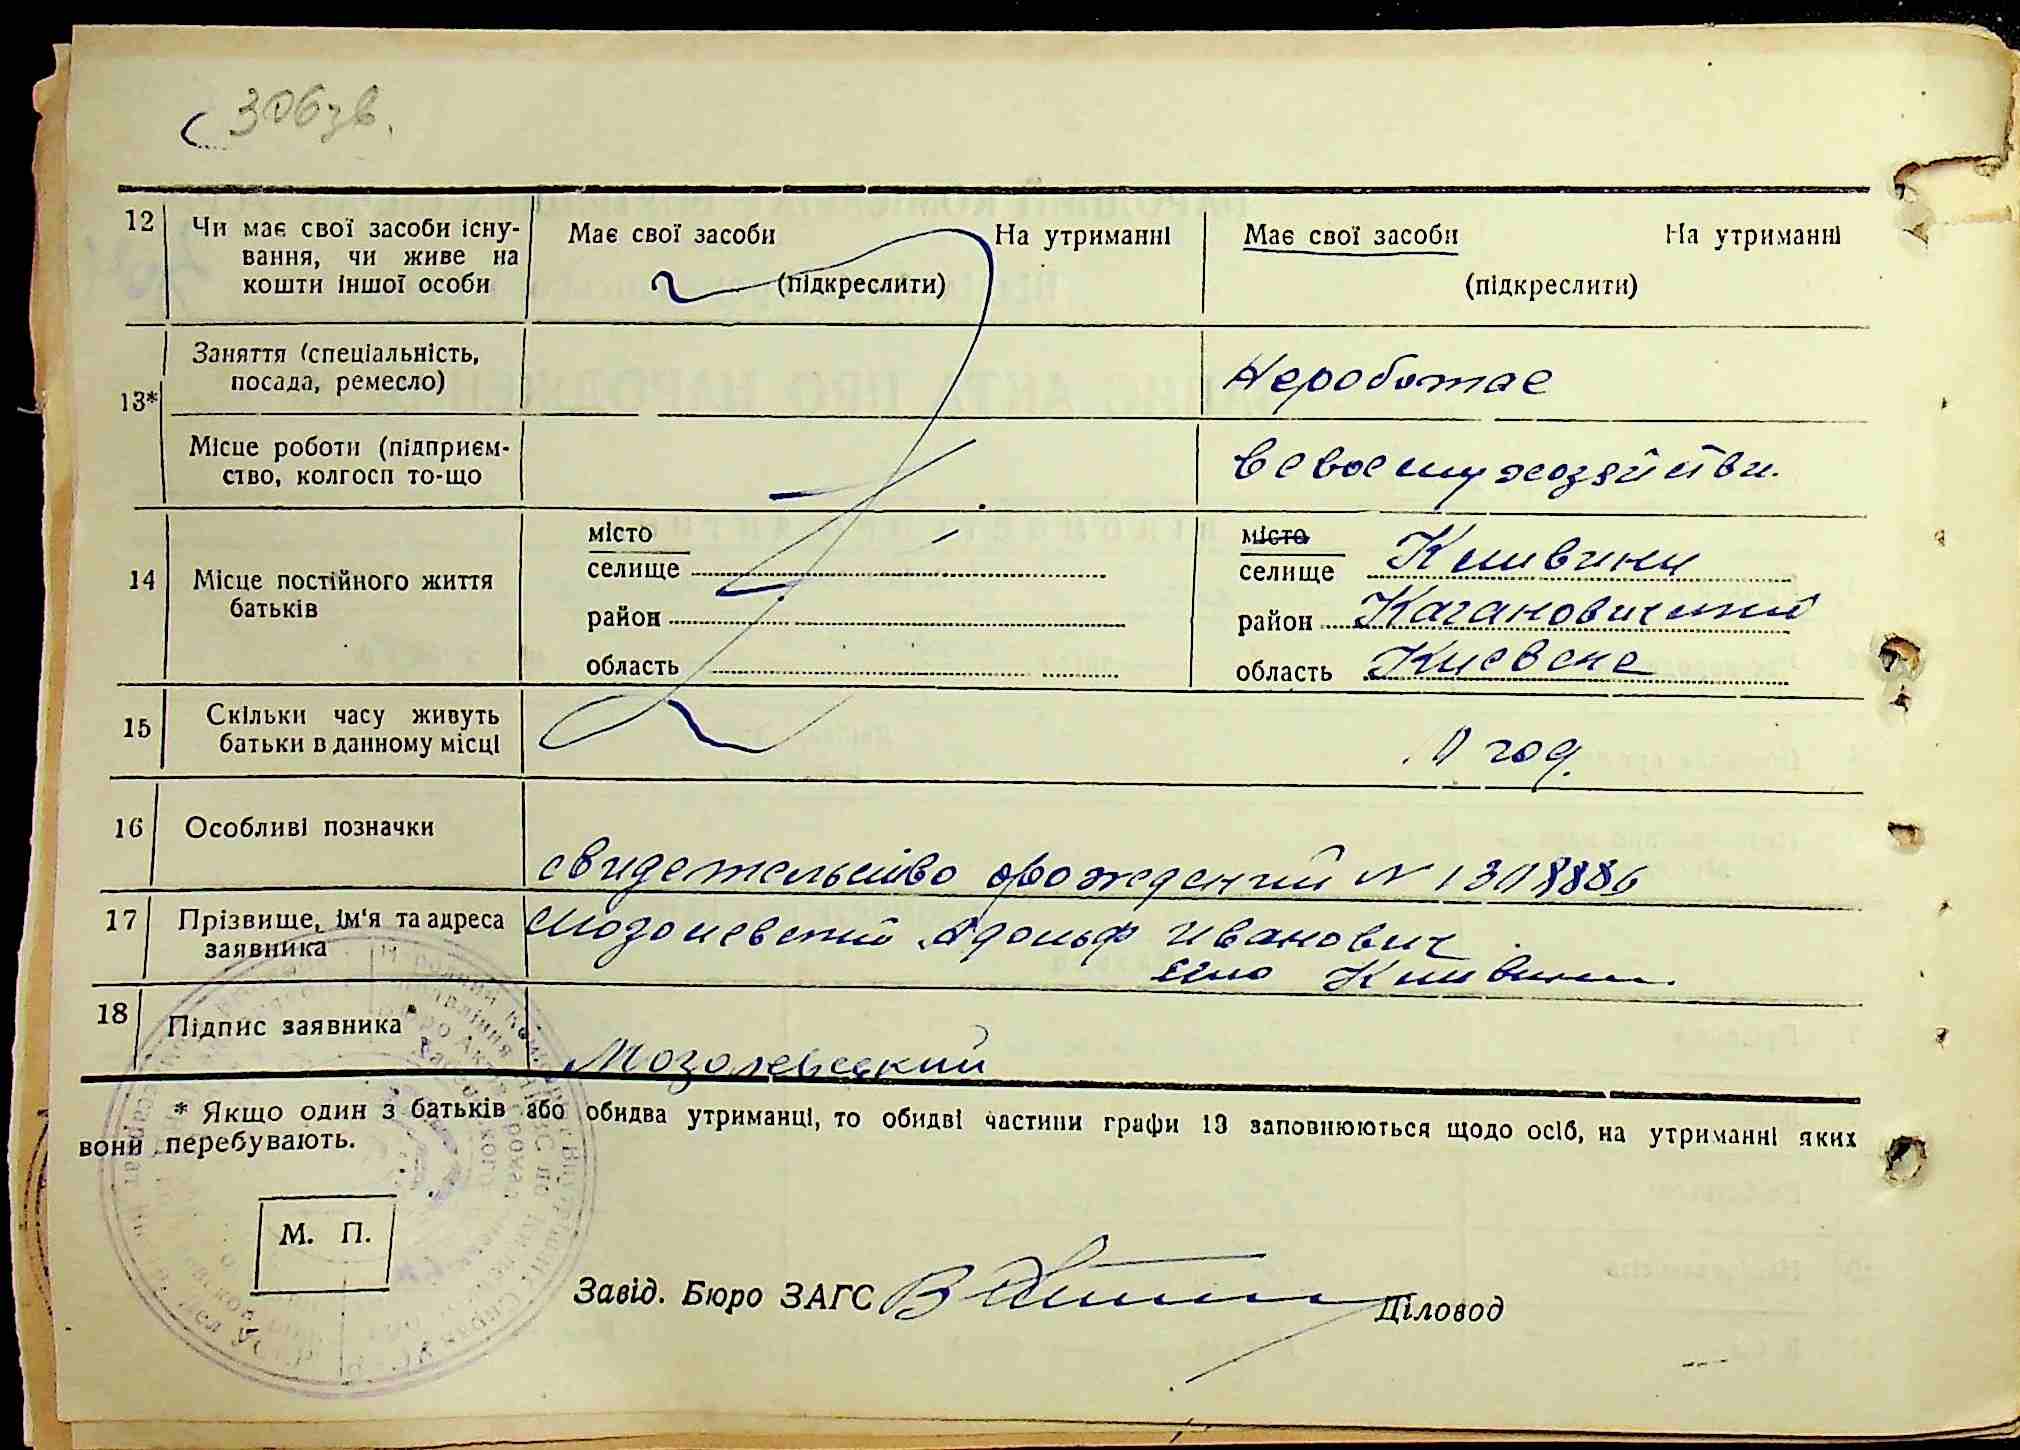 306зв.
12 Чи має свої засоби існу-
вання, чи живе на
кошти іншої особи
Має свої засоби На утриманні
(підкреслити)
Має свої засоби На утриманні
(підкреслити)
13* Заняття (спеціальність,
посада, ремесло)
Неработае
Місце роботи (підприєм-
ство, колгосп то-що
в своему хозяйстви.
14 Місце постійного життя
батьків
місто
селище
район
область
місто
селище Кливини
район Кагановичский
область Киевске
15 Скільки часу живуть
батьки в данному місці
год.
16 Особливі позначки
свидетельство орождении N
17 Прізвище, ім'я та адреса
заявника
Мозолевский Адольф Иванович
село Кливини.
18 Підпис заявника
Мозолевский
* Якщо один з батьків або обидва утриманці, то обидві частини графи 13 заповнюються щодо осіб, на утриманні яких
вони перебувають.
М. П.
Завід. Бюро ЗАГС Діловод